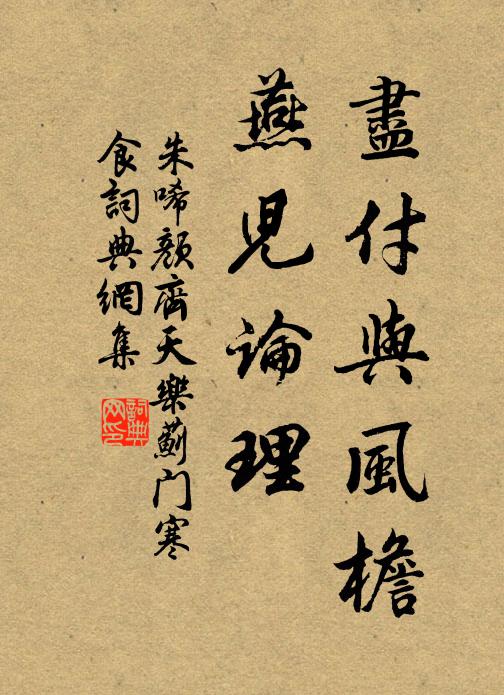 盡付與風檐
燕児論理
朱唏顏齊天樂薊门寒
食詞典網集
詞典
网印